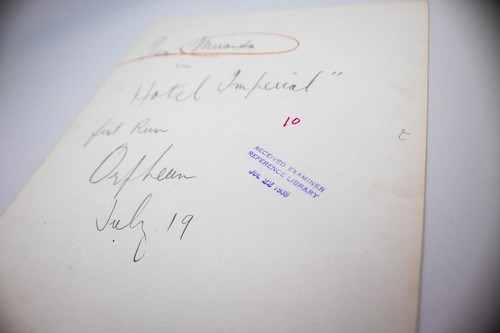 Isa Miranda
in
Hotel Imperial"
first Run
Orpheum
July 19
10
RECEIVED EXAMINER
REFERENCE LIBRARY
JUL 22 1939
2